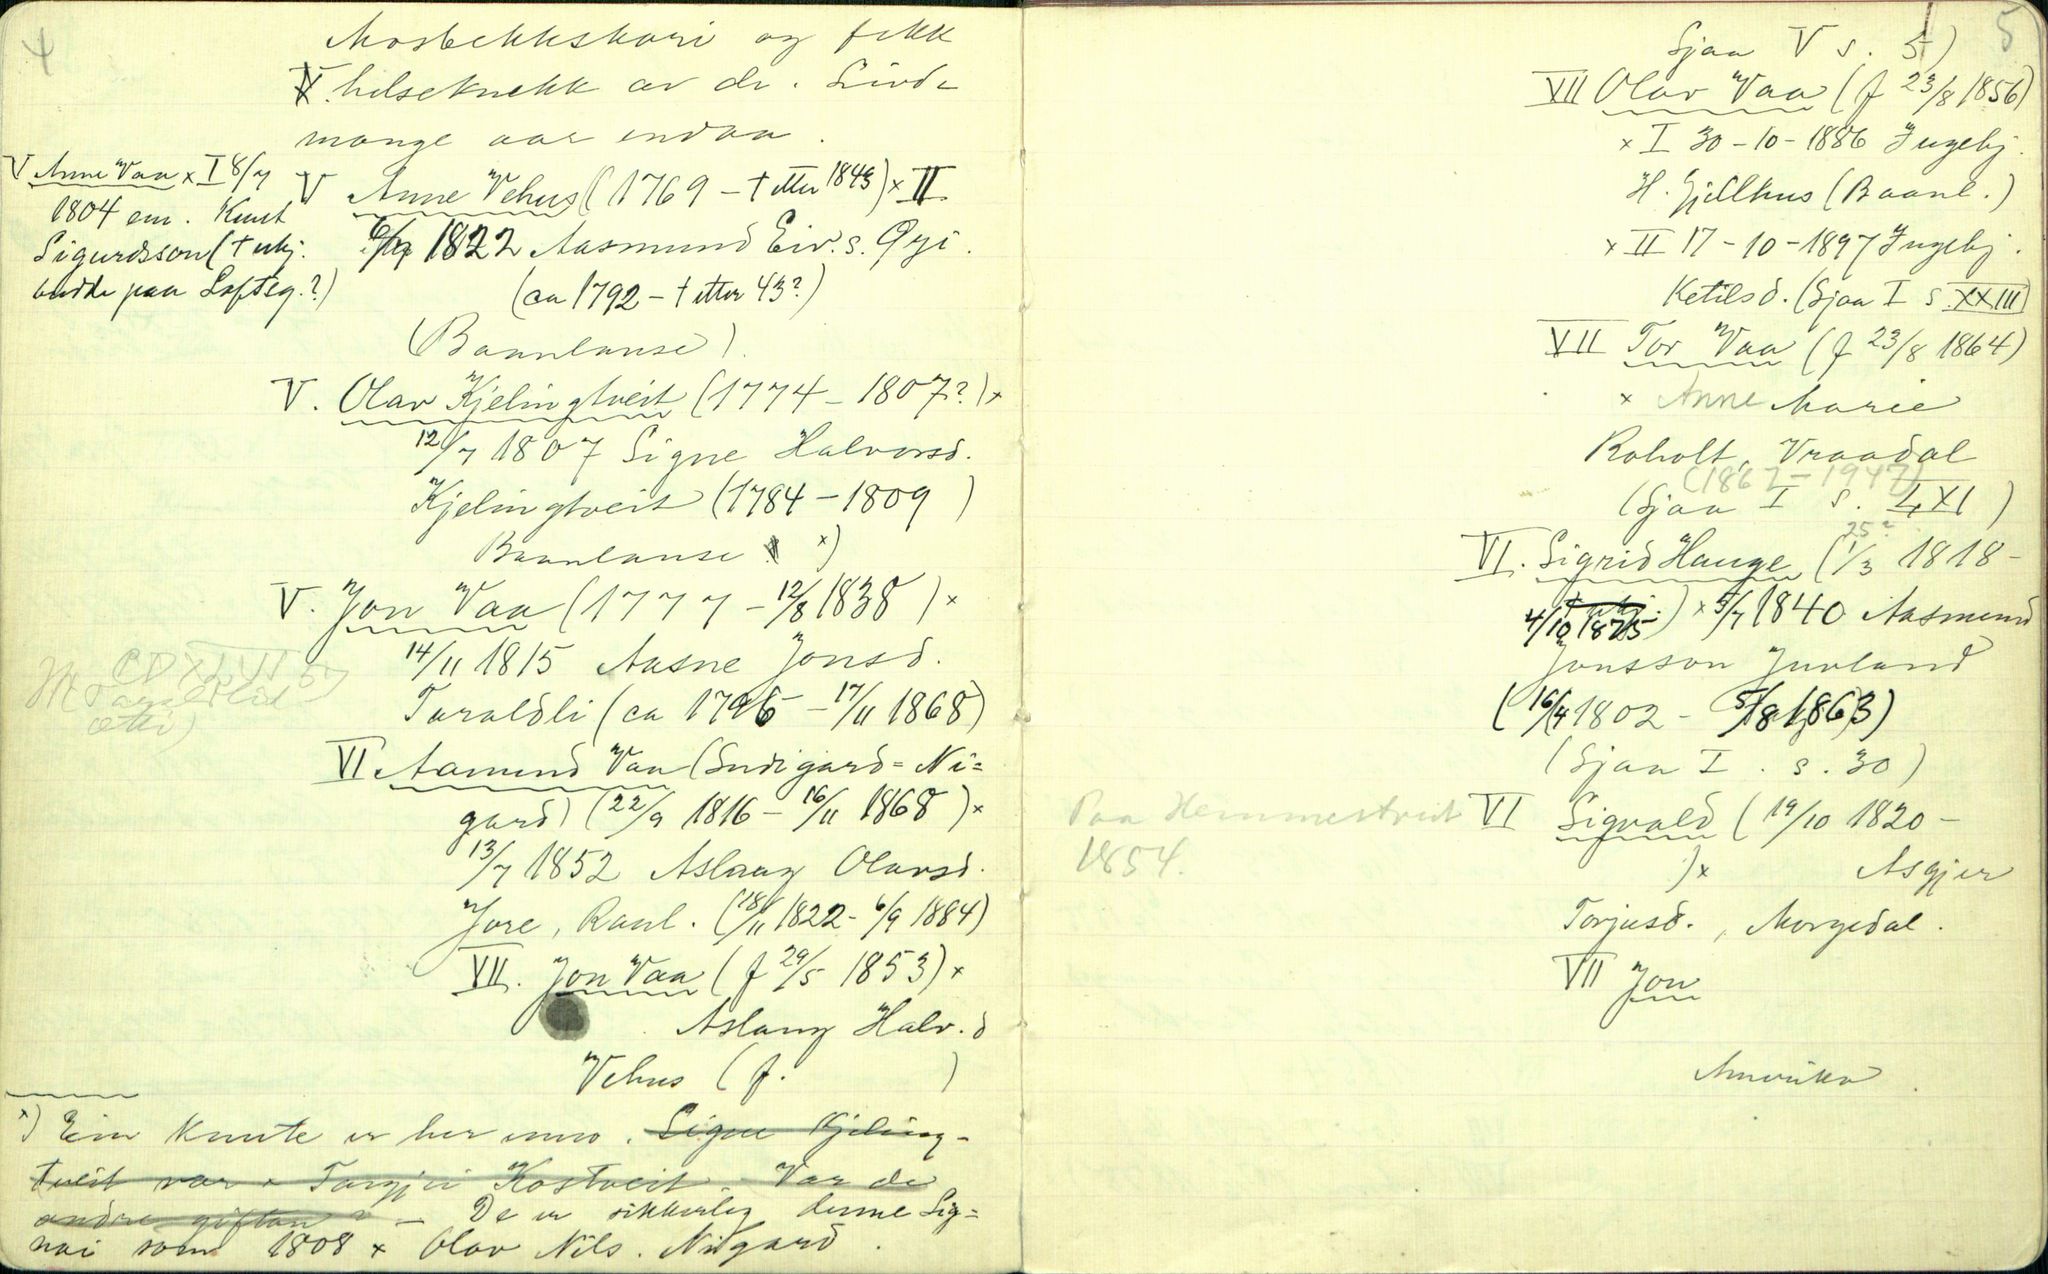 4
Mosbekkskari og fekk
helseknekk av de. Livde
mange aar endaa.
V Anne Vaa × I 8/7
1804 em. Knut
Sigurdsson († ukj.
budde paa Loftsg.?)
V Anne Vehus (1769 – † etter 1843) × II
1822 Aasmund Eiv.s. Øyi.
(ca 1792 – † etter 43?)
(Baanlause).
V. Olav Kjelingtveit (1774 – 1807?) ×
12/7 1807 Signe Halvorsd.
Kjelingtveit (1784 – 1809 )
Baanlause ×)
V. Jon Vaa (1777 – 12/8 1838) ×
14/11 1815 Aasne Jonsd.
Taraldli (ca 1796 – 17/11 1868)
VI Aamund Vaa (Sudigard = Ni=
gard) (22/9 1816 – 16/11 1868) ×
13/7 1852 Aslaug Olavsd.
Jore, Raul. (18/11 1822 – 6/9 1884)
VII. Jon Vaa (f 29/5 1853) ×
Aslaug Halv.d
Vehus (f. )
×) Ein knute er her enno. Signe Kjeling-
tveit var × Targjei Kostveit. Var de
andre giftan? – De er sikkerleg denne Sig=
nei som 1808 × Olav Nils. Nigard.
5
Sjaa V s. 5)
VII Olav Vaa (f 23/8 1856)
× I 30-10-1886 Ingebj.
H. Gjellhus (Baanl.)
× II 17-10-1897 Ingebj.
Ketilsd. (Sjaa I s XXIII)
VII Tor Vaa (f 23/8 1864)
× Anne Marie
Roholt, Vraadal
(1867 – 1947)
(Sjaa I s. LXI)
25?
VI. Sigrid Hauge (1/3 1818 –
4/10 1875) × 5/7 1840 Aasmund
Jonsson Juvland
(16/4 1802 – 5/8 1863)
(Sjaa I. s. 30)
Paa Hemmestveit
1854.
VI Sigvald (19/10 1820 –
) × Asgjer
Torjusd., Morgedal.
VII Jon
Amerika.